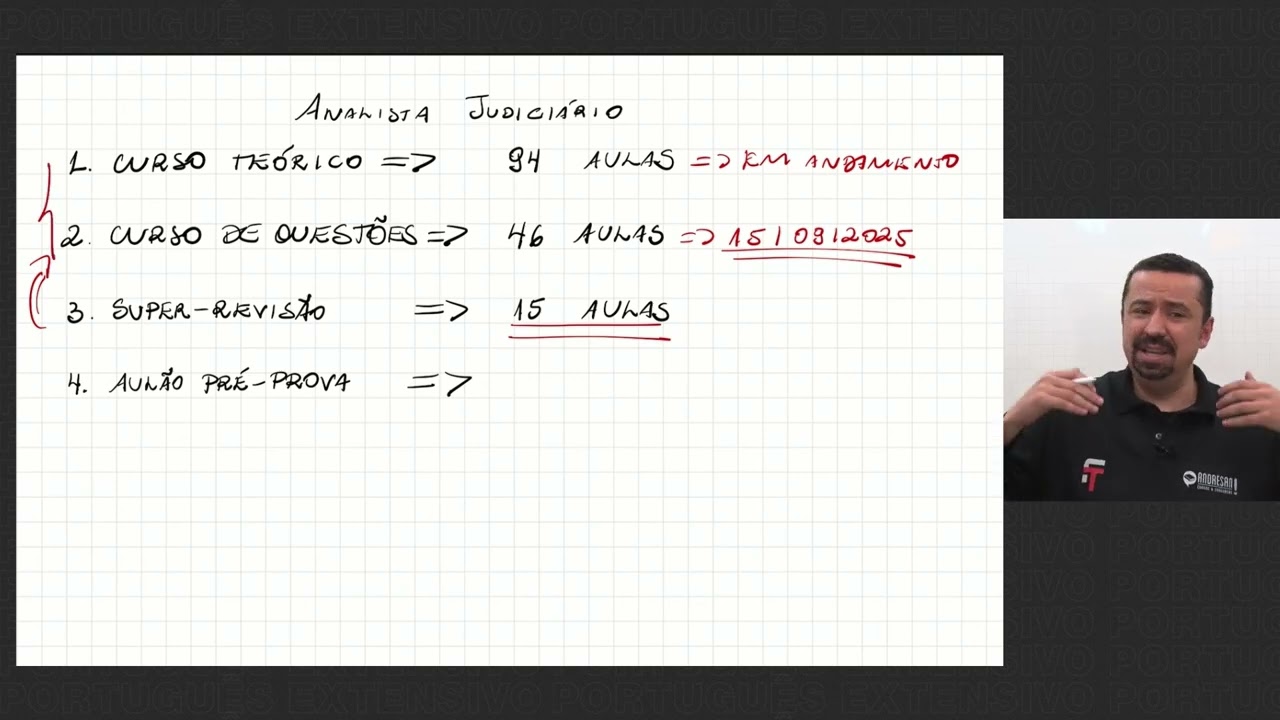 PORTUGUÊS EXTENSIVO PORTUGUÊS EXTENSIVO PORTUGUÊS EXTENSIVO
ANALISTA JUDICIÁRIO
1. CURSO TEÓRICO => 94 AULAS => EM ANDAMENTO
2. CURSO DE QUESTÕES => 46 AULAS => 15/09/2025
3. SUPER-REVISÃO => 15 AULAS
4. AULÃO PRÉ-PROVA =>
FT
ANDRESAN!